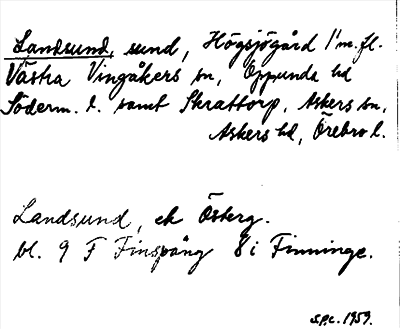 Landsund, sund, Högsjögård 1' m. fl.
Västra Vingåkers sn, Oppunda hd
Söderm. l. samt Skrattorp, Askers sn,
Askers hd, Örebro l.
Landsund, ek Österg.
bl. 9 F Finspång 8 i Finninge.
s.p.c. 1959.